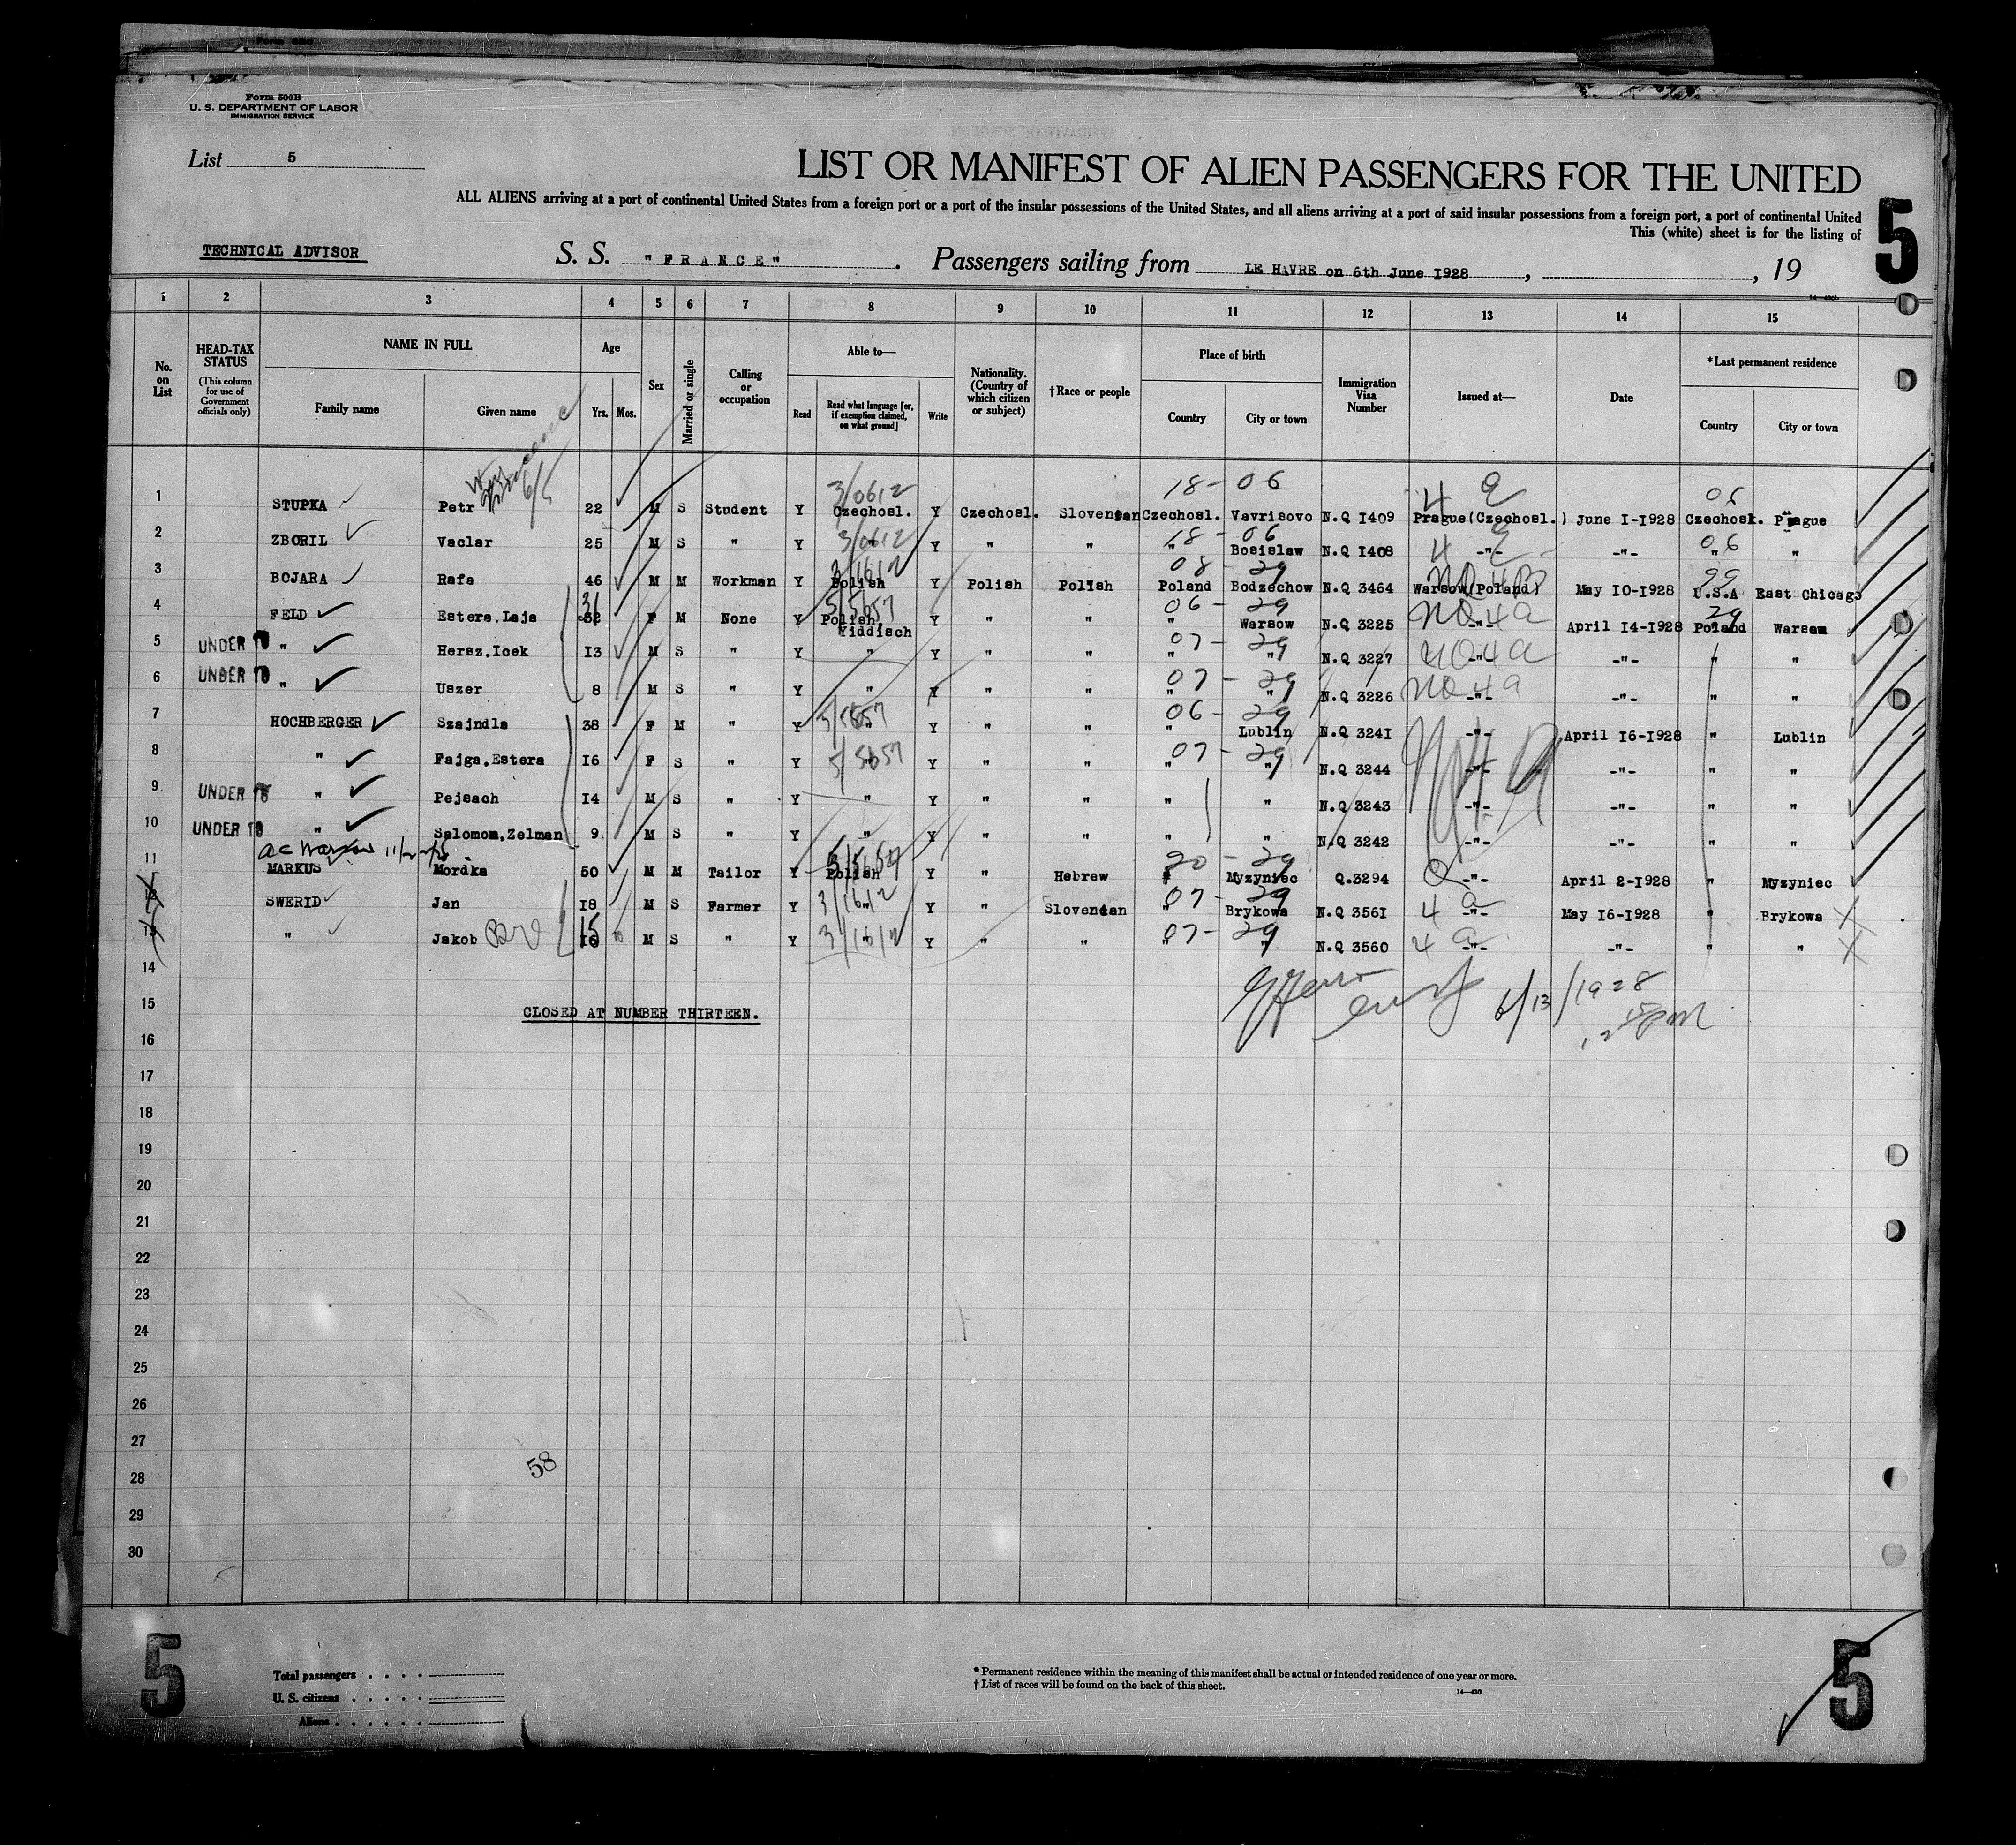 Form 500B
U. S. DEPARTMENT OF LABOR
IMMIGRATION SERVICE
List 5
LIST OR MANIFEST OF ALIEN PASSENGERS FOR THE UNITED
ALL ALIENS arriving at a port of continental United States from a foreign port or a port of the insular possessions of the United States, and all aliens arriving at a port of said insular possessions from a foreign port, a port of continental United
This (white) sheet is for the listing of
5
TECHNICAL ADVISOR S. S. "FRANCE" . Passengers sailing from LE HAVRE on 6th June 1928 , , 19
14—430
1 2 3 4 5 6 7 8 9 10 11 12 13 14 15
No. on List HEAD-TAX STATUS (This column for use of Government officials only) NAME IN FULL Family name Given name Age Yrs. Mos. Sex Married or single Calling or occupation Able to— Read Read what language [or, if exemption claimed, on what ground] Write Nationality. (Country of which citizen or subject) †Race or people Place of birth Country City or town Immigration Visa Number Issued at— Date *Last permanent residence Country City or town
3/0612 18-06 4 a 06
1 STUPKA Petr 6/5 22 M S Student Y Czechosl. Y Czechosl. Slovenian Czechosl. Vavrisovo N.Q 1409 Prague(Czechosl.) June 1-1928 Czechosl. Prague
3/0612 18-06 4 06
2 ZBORIL Vaclar 25 M S " Y " Y " " " Bosislaw N.Q 1408 -"- -"- " "
3/1612 08-29 NQ4B 99
3 BOJARA Rafa 46 M M Workman Y Polish Y Polish Polish Poland Bodzechow N.Q 3464 Warsow(Poland) May 10-1928 U.S.A East Chicago
31 5/5657 06-29 NQ4a 29
4 FELD Estera.Laja 32 F M None Y Polish, Yiddisch Y " " " Warsow N.Q 3225 -"- April 14-1928 Poland Warsaw
07-29 NQ4a
5 UNDER 16 " Hersz.Icek 13 M S " Y " Y " " " " N.Q 3227 -"- -"- " "
07-29 NQ4a
6 UNDER 16 " Uszer 8 M S " Y " Y " " " " N.Q 3226 -"- -"- " "
5/5657 06-29
7 HOCHBERGER Szajndla 38 F M " Y " Y " " " Lublin N.Q 3241 -"- April 16-1928 " Lublin
5/5657 07-29
8 " Fajga.Estera 16 F S " Y " Y " " " " N.Q 3244 -"- -"- " "
9 UNDER 16 " Pejsach 14 M S " Y " Y " " " " N.Q 3243 -"- -"- " "
10 UNDER 16 " Salomom.Zelman 9 M S " Y " Y " " " " N.Q 3242 -"- -"- " "
20-29 Q
11 MARKUS Mordka 50 M M Tailor Y Polish Y " Hebrew " Myzyniec Q.3294 -"- April 2-1928 " Myzyniec
3/1612 07-29 4 a
12 SWERID Jan 18 M S Farmer Y " Y " Slovenian " Brykowa N.Q 3561 -"- May 16-1928 " Brykowa
15 3/1612 07-29 4 a
13 " Jakob 16 M S " Y " Y " " " " N.Q 3560 -"- -"- " "
14
6/13/1928
15 CLOSED AT NUMBER THIRTEEN.
16
17
18
19
20
21
22
23
24
25
26
27
58
28
29
30
5
Total passengers . . . .
U. S. citizens . . . . .
Aliens . . . . . .
* Permanent residence within the meaning of this manifest shall be actual or intended residence of one year or more.
† List of races will be found on the back of this sheet.
14—430
5